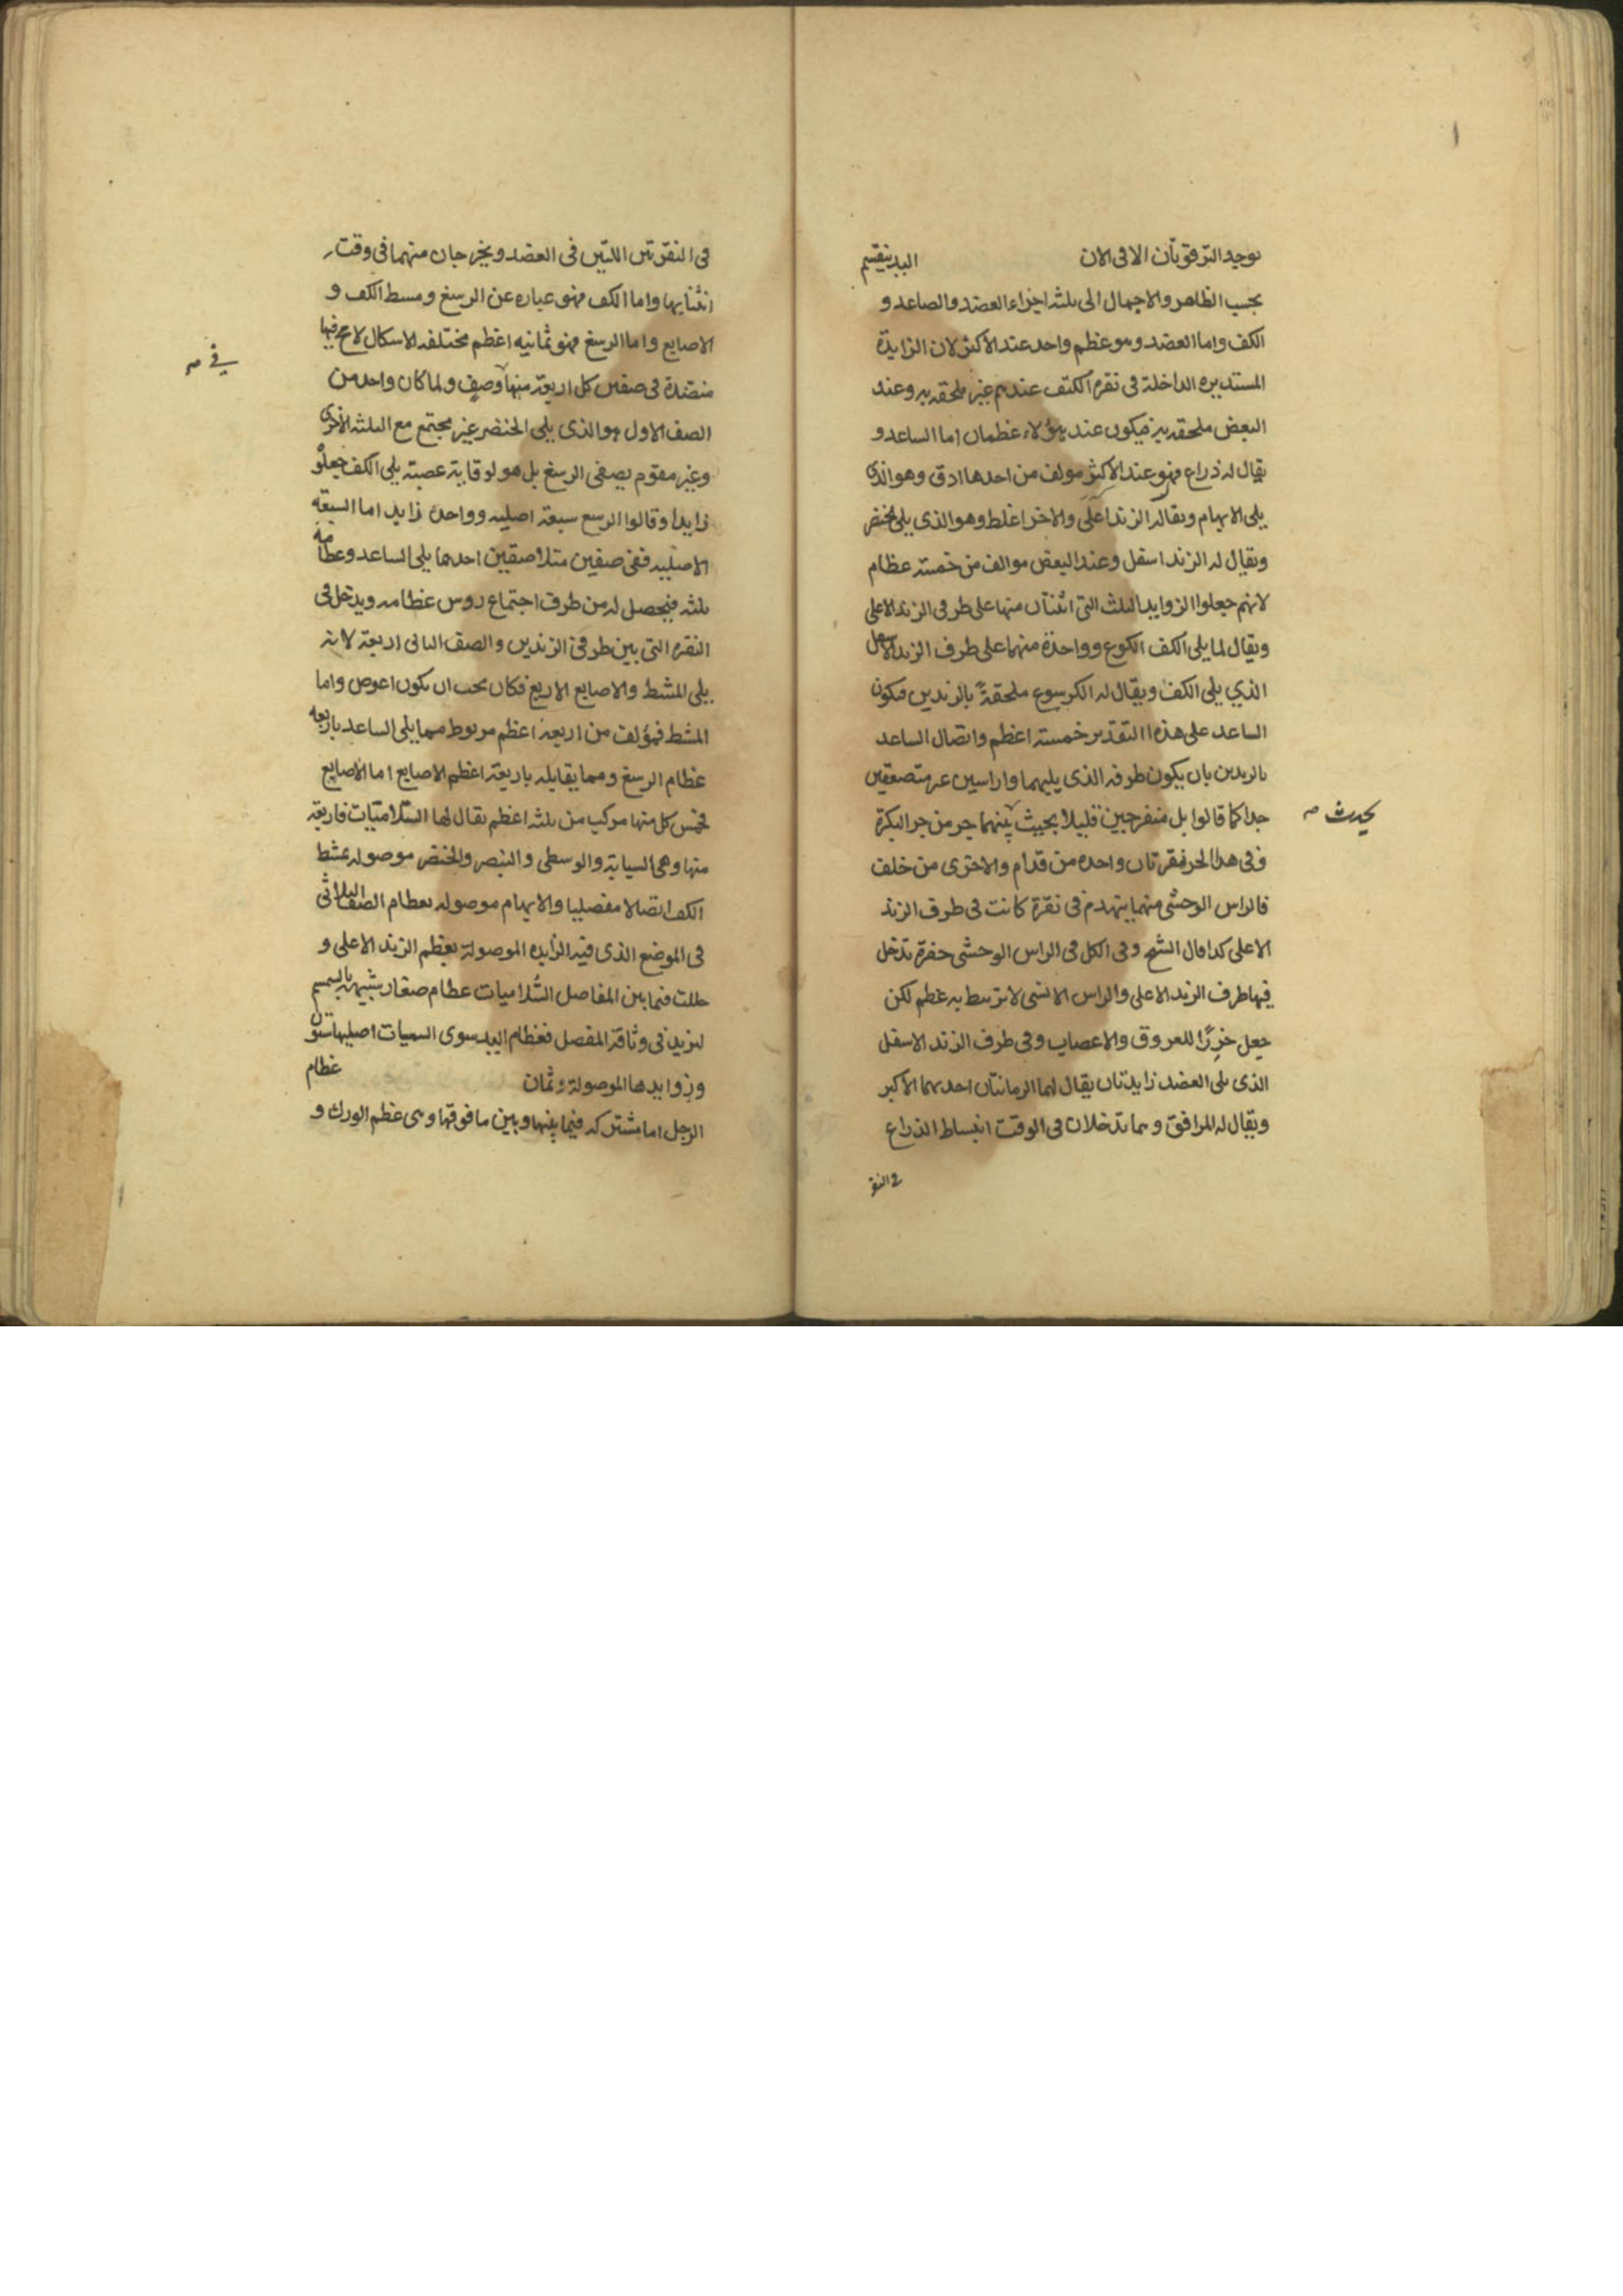 توجد الترقوتان الا فى الان اليد ينقسم
بحسب الظاهر والاجمال الى ثلثه اجزاء العضد والصاعد و
الكف واما العضد وهو عظم واحد عند الاكثر لان الزايدة
المستديره الداخلة فى نقره الكتف عندهم غير ملحقه به وعند
البعض ملحقه به فيكون عند هؤلاء عظمان اما الساعد و
يقال له ذراع فهو عند الاكثر مولف من احدها ادق وهو الذى
يلى الابهام ويقال له الزند اعلى والاخر اغلط وهو الذى يلى الخنصر
ويقال له الزند اسفل وعند البعض موالف من خمسته عظام
لانهم جعلوا الزوايد الثلث التى اثنتان منها على طرفى الزند الاعلى
ويقال لما يلى الكف الكوع وواحدة منهما على طرف الزند الاسفل
الذي يلى الكف ويقال له الكرسوع ملحقةً بالزندين فيكون
الساعد على هذا التقدير خمسته اعظم واتصال الساعد
بالزندين بان يكون طرفه الذى يليهما واراسين غير متصعقين
جدا كما قالوا بل منفرجين قليلا بحيث بينهما حر من جر البكرة
يحدث صح
وفى هذا الحر نقرتان واحده من قدام والاخرى من خلف
فالراس الوحشى منهما يتهدم فى نقرة كانت فى طرف الزند
الاعلى كذا قال الشيخ وفى الكل فى الراس الوحشى حفرة تدخل
فيها طرف الزند الاعلى والراس الانسى لا ترتبط به عظم لكن
جعل حرزًا للعروق والاعصاب وفى طرف الزند الاسفل
الذى يلى العضد زايدتان يقال لهما الرمانتان احدهما الاكبر
ويقال له المرافق وهما تدخلان فى الوقت انبساط الذراع
فى النقر
فى النقرتين اللتين فى العضد ويخرجان منهما فى وقت
انثنايها واما الكف فهو عباره عن الرسغ ومسط الكف و
الاصابع واما الرسغ فهو ثمانيه اعظم مختلفه الاشكال لا مخ فيها
منضدة فى صفين كل اربعة منها وصفٍ ولما كان واحد من
فى صح
الصف الاول هو الذى يلى الخنصر غير مجتمع مع الثلثه الاخرى
وغير مقوم بصفى الرسغ بل هو لوقاية عصبته يلى الكف جعلوا
زايدا وقالوا الرسع سبعة اصليه وواحدة زايد اما السبعه
الاصليه ففى صفين متلاصقين احدهما يلى الساعد وعظامه
ثلثه فيحصل له من طرف اجتماع روس عظامه ويدخل فى
النقره التى بين طرفى الزندين والصف الثانى اربعة لانه
يلى المشط والاصابع الاربع فكان يجب ان يكون اعوص واما
المشط فمؤلف من اربعة اعظم مربوط مما يلى الساعد باربعه
عظام الرسغ ومما يقابله باربعة اعظم الاصابع اما الاصابع
فخمس كل منها مركب من ثلثه اعظم يقال لها السلاميات فاربعة
منها وهى السبابة والوسطى والبنصر والخنصر موصوله بمشط
الكف اتصالا مفصليا والابهام موصوله بعظام الصف الثلاثى
فى الموضع الذى فيه الزايده الموصولة بعظم الزند الاعلى و
حللت فيما بين المفاصل السُلاميات عظام صغار شبيهة بالسمسم
لتزيد فى وثاقة المفصل فعظام اليد سوى السميات اصليها ستون
وزوايدها الموصولة ثمان عظام
الرجل اما مشتركه فيما بينها وبين ما فوقها وهى عظم الورك و